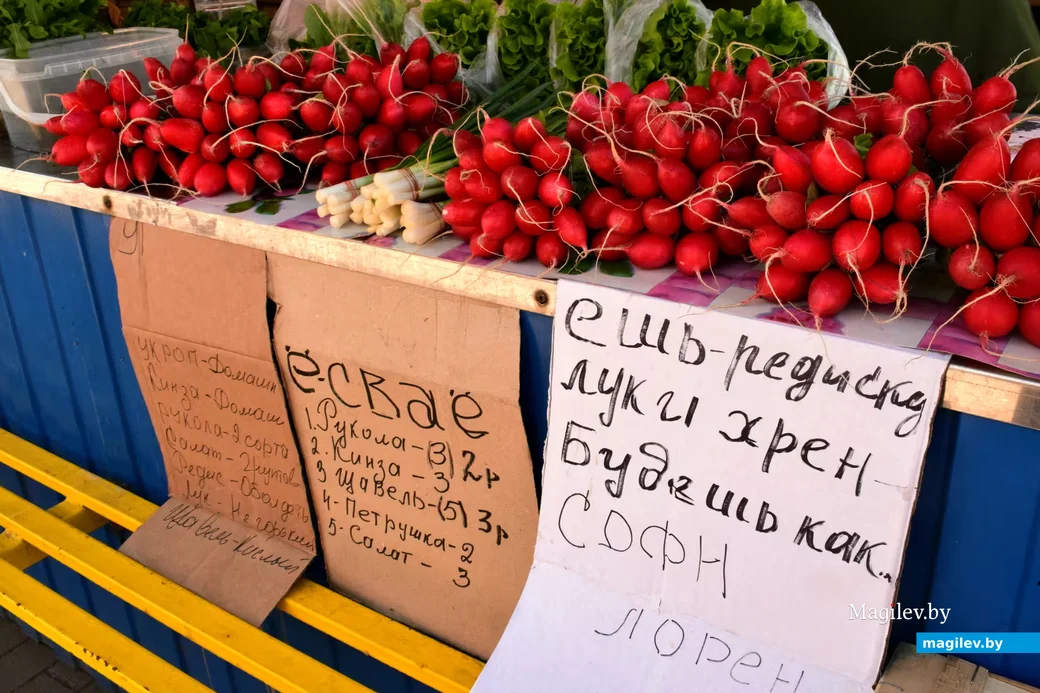 У
УКРОП-Домашн
Кинза-Домаш
рукола-2 сорта
Салат-2румов
Редис-Обалдеть
Лук Не горький
Щавель-кислый
ё.свае
1.Рукола-(3)2р
2.Кинза-3
3 Щавель-(5)3р
4-Петрушка-2
5-Салат-3
ешь-редиску
лук и хрен-
Будешь как..
СОФИ
ЛОРЕН
Magilev.by
magilev.by